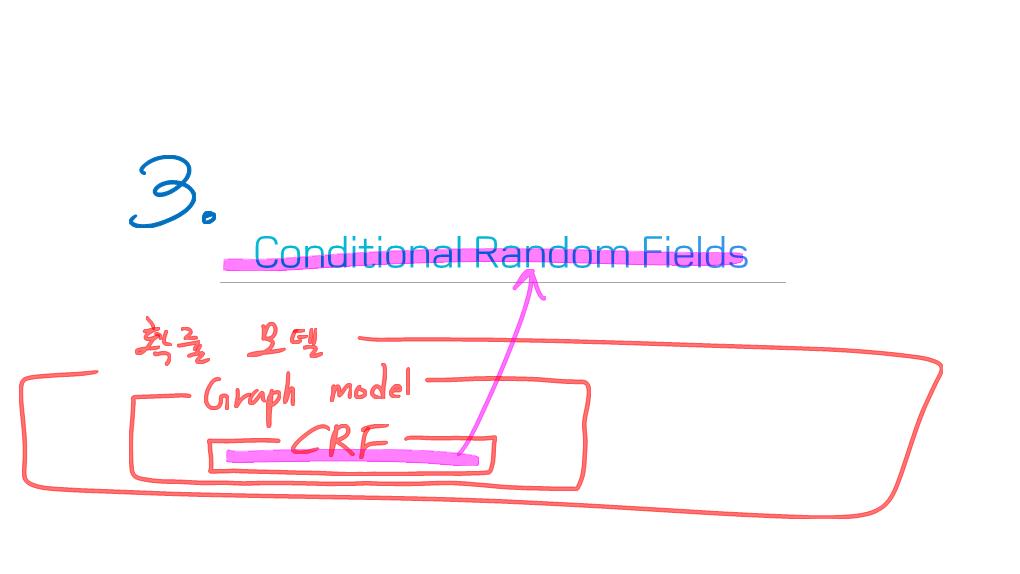 3.
Conditional Random Fields
확률 모델
Graph model
CRF